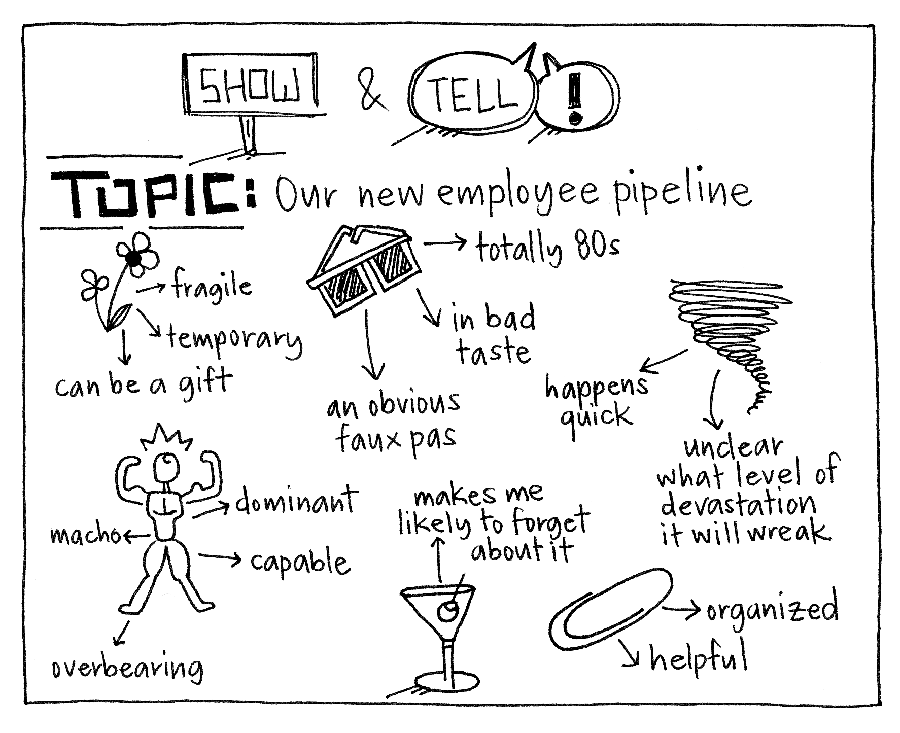 SHOW & TELL !
TOPIC: Our new employee pipeline
fragile
temporary
can be a gift
totally 80s
in bad
taste
an obvious
faux pas
happens
quick
unclear
what level of
devastation
it will wreak
dominant
macho
capable
overbearing
makes me
likely to forget
about it
organized
helpful